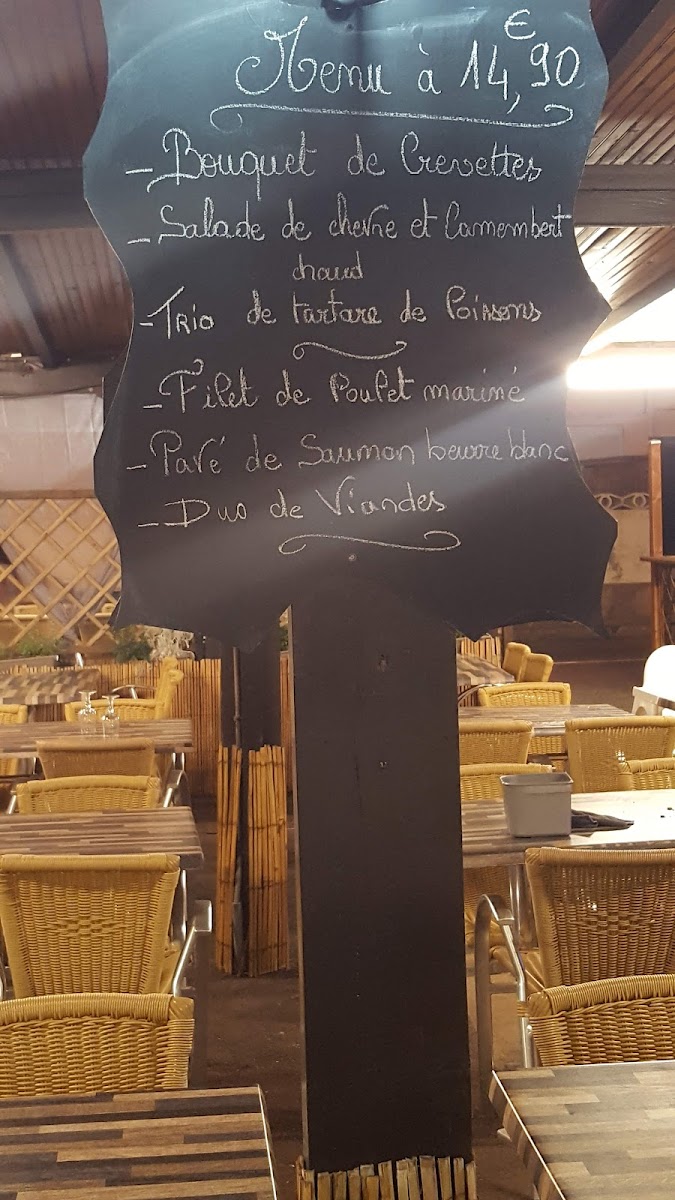 Menu à 14,90€
- Bouquet de Crevettes
- Salade de chevre et Camembert
chaud
- Trio de tartare de Poissons
- Filet de Poulet mariné
- Pavé de Saumon beurre blanc
- Duo de Viandes